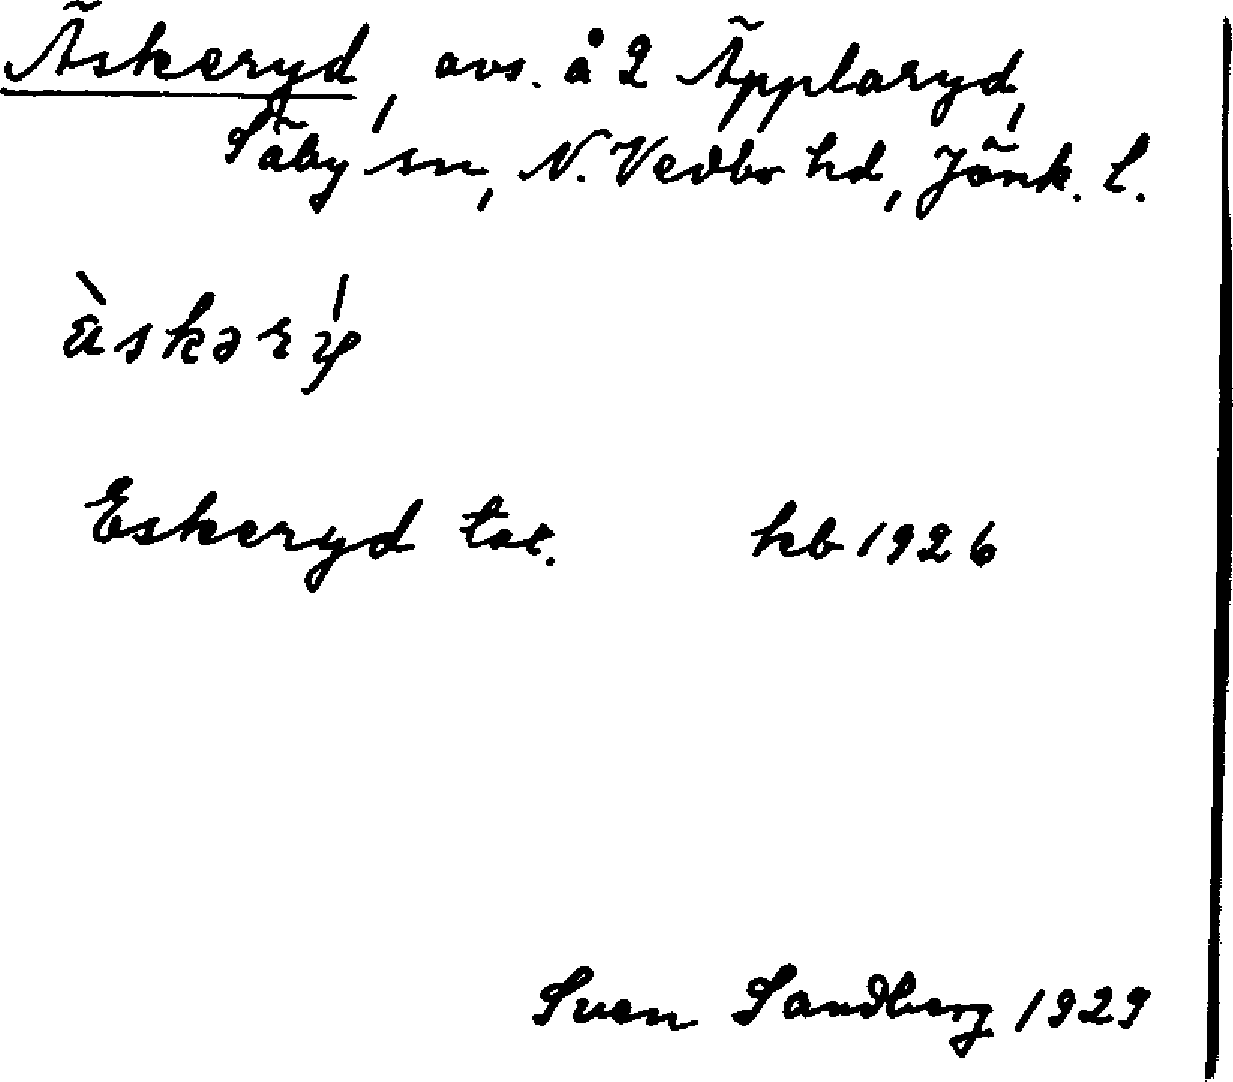 Äskeryd, avs. å 2 Äpplaryd,
Säby sn, N. Vedbo hd, Jönk. l.
ä̀skərý
Eskeryd tor. kb 1926
Sven Sandberg 1929